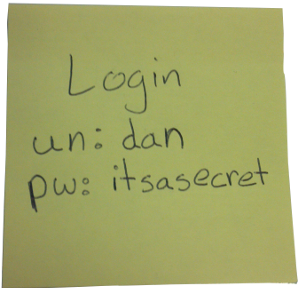 Login
un: dan
pw: itsasecret